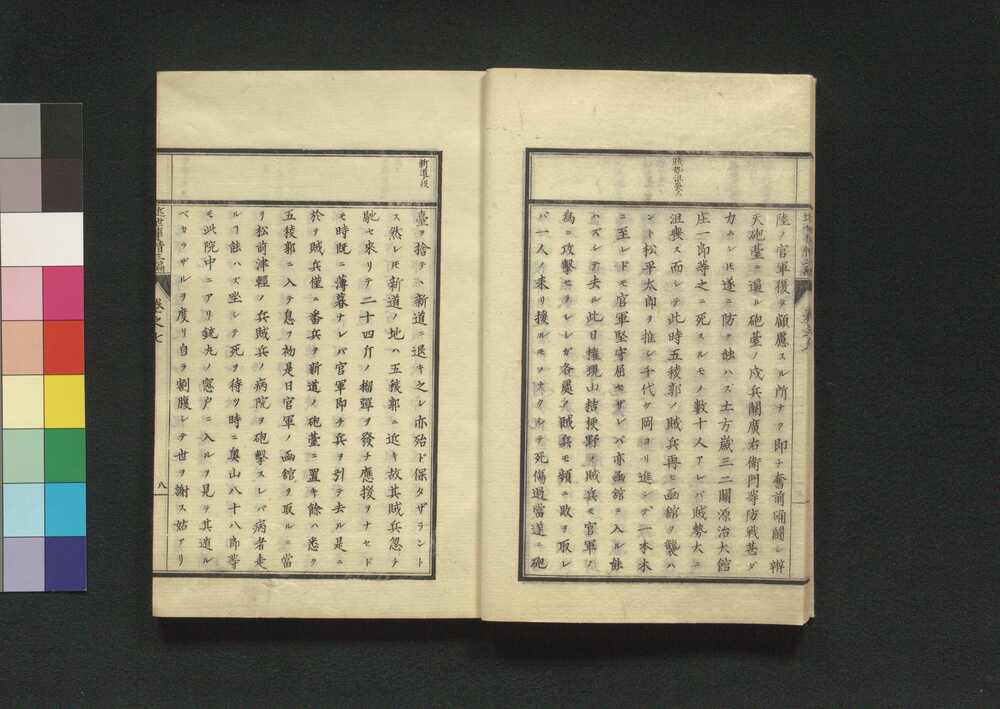 陸ノ官軍復タ顧慮スル所ナク即チ奮前硇鬪シ辨
天砲臺ニ逼ル砲臺ノ戍兵關廣右衛門等防戰甚ダ
力ムレ𪜈遂ニ防ク能ハズ土方歳三二關源治大館
庄一郎等之ニ死スルモノ數十人アレバ賊勢大ニ
沮喪ス而シテ此時五稜郭ノ賊兵再ヒ函館ヲ襲ハ
ント松平太郎ヲ推シ千代ケ岡ヨリ進ンデ一本木
ニ至レドモ官軍堅守屈セザレバ亦函館ニ入ル能
ハズシテ去ル此日權現山桔梗野ノ賊兵モ官軍ノ
為ニ攻擊セラレシガ各處ノ賊兵モ頻ニ敗ヲ取レ
バ一人ノ来リ援ルモノナク
死傷過當遂ニ砲
新道役
臺ヲ捨テヽ新道ニ退キ之レ亦殆ド保タザラント
ス然レ𪜈新道ノ地ハ五稜郭ニ近キ故其賊兵忽チ
馳セ來リテ二十四斤ノ榴彈ヲ發チ應援ヲナセド
モ時既ニ薄暮ナレバ官軍即チ兵ヲ引テ去ル是ニ
於ヲ賊兵僅ニ番兵ヲ新道ノ砲臺ニ置キ餘ハ悉ク
五稜郭ニ入テ息フ初是日官軍ノ函館ヲ取ルニ當
リ松前津輕ノ兵賊兵ノ病院ヲ砲擊スレバ病者走
ルコ能ハズ坐シテ死ヲ待ツ時ニ奧山八十八郎等
モ此院中ニアリ銃丸ノ窓户ニ入ルヲ見テ其遁ル
ベカラザルヲ度リ自ラ割腹シテ世ヲ謝ス姑アリ
近世事情三編
卷之七
八